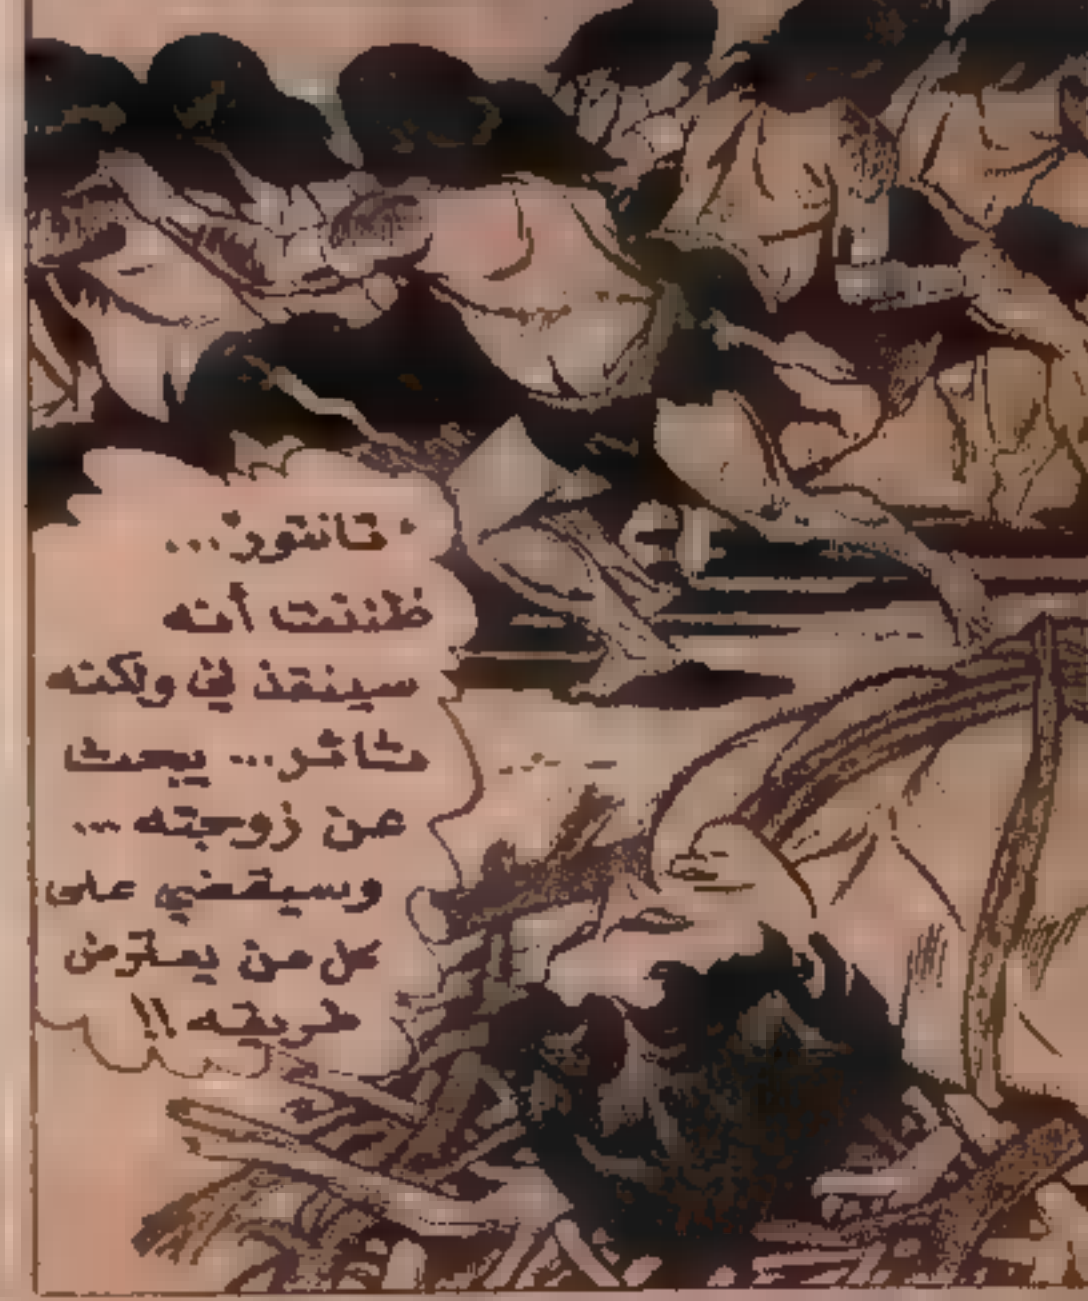 تانتور...
ظننت أنه
سينقذني ولكنه
ثائر... يبحث
عن زوجته ...
وسيقضي على
كل من يعترض
طريقه !!